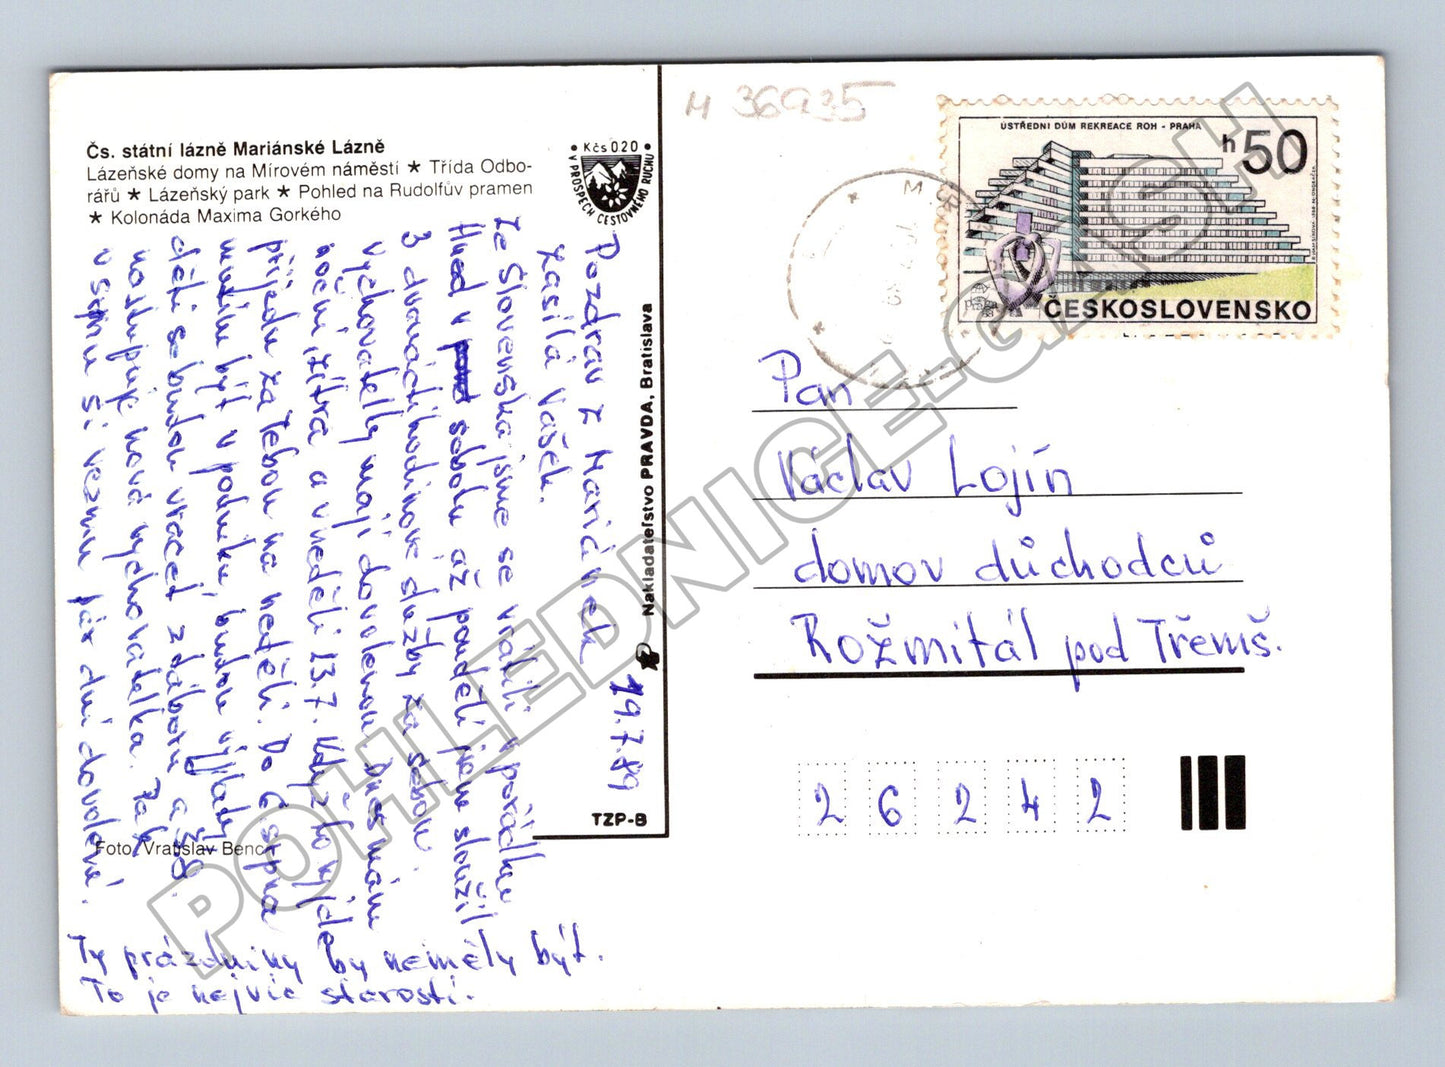 Čs. státní lázně Mariánské Lázně
Lázeňské domy na Mírovém náměstí ★ Třída Odbo-
rářů ★ Lázeňský park ★ Pohled na Rudolfův pramen
★ Kolonáda Maxima Gorkého
• Kčs 0.20 •
V PROSPĚCH CESTOVNÉHO RUCHU
M 36935
ÚSTŘEDNÍ DŮM REKREACE ROH - PRAHA
h 50
ČESKOSLOVENSKO
Pozdrav z Mariánek 19.7.89
zasílá Vašek.
Ze Slovenska jsme se vrátili v pořádku
Hned v sobotu až pondělí jsem sloužil
3 dvanáctihodinové služby za sebou.
Vychovatelky mají dovolenou. Dnes mám
noční, zítra a v neděli 13.7. Když to vyjde
přijedu za Tebou na neděli. Do srpna
musím být v podniku, budou výjlady
děti se budou vracet z táboru a
nastupuje nová vychovatelka. Pak
v srpnu si vezmu pár dní dovolené.
Ty prázdniny by neměly být.
To je nejvíc starostí.
Foto: Vratislav Bench
Nakladateľstvo PRAVDA, Bratislava
TZP-8
Pan
Václav Lojín
domov důchodců
Rožmitál pod Třemš.
26242
POHLEDNICE-GASH